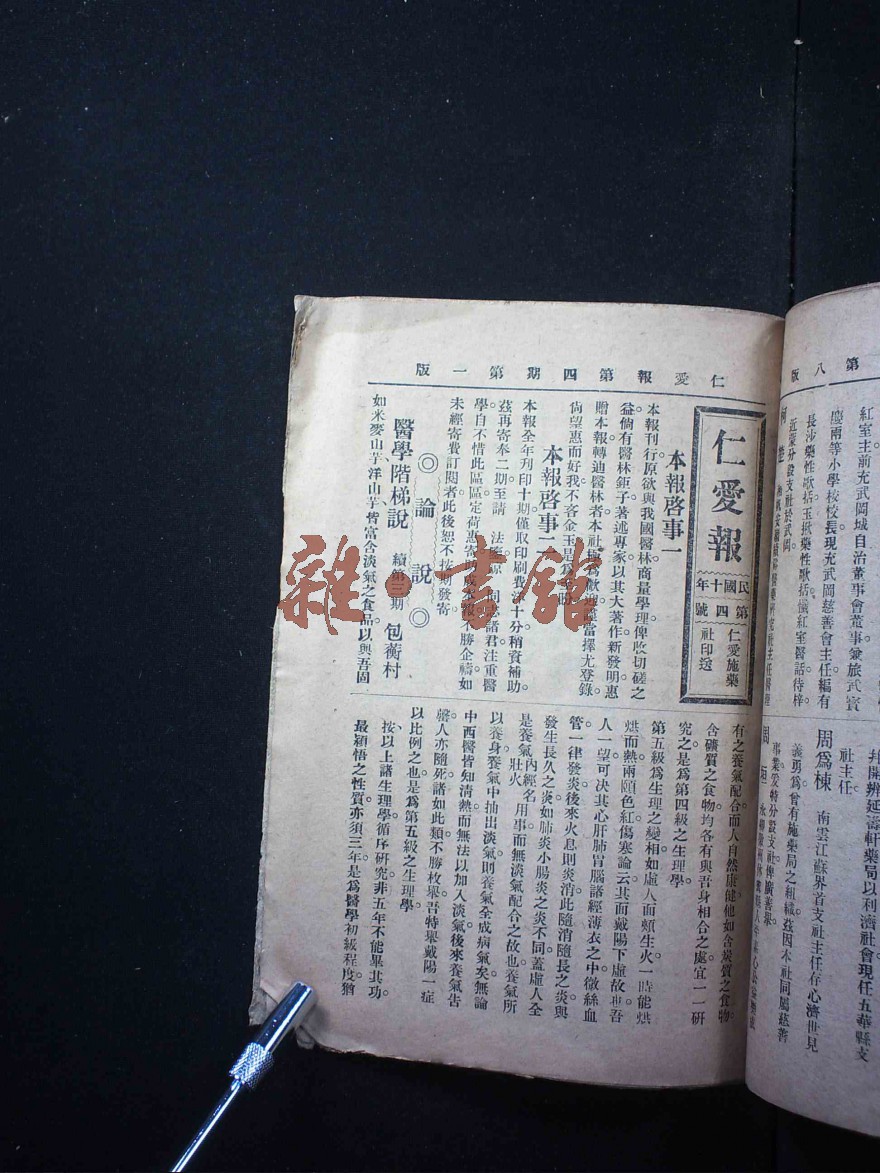 仁愛報第四期第一版
仁愛報
民國十年
第四號
仁愛施藥
社印送
本報啓事一
本報刊行原欲與我國醫林商量學理俾收切磋之
益倘有醫林鉅子著述專家以其大著作新發明惠
贈本報轉廸醫林者本社極爲歡迎擇尤登錄。
倘望惠而好我不吝金玉是爲至盼
本報啓事二
本報全年刊印十期僅取印刷費洋十分稍資補助
茲再寄奉二期至請 法鑒 諸君注重醫
學自不惜此區區定荷惠寄助成本報不勝企禱如
未經寄費訂閱者此後恕不按期發寄
◎論說◎
醫學階梯說 續第三期 包蘅村
如米麥山芋、洋山芋、皆富含淡氣之食品以與吾固
有之養氣配合而人自然康健他如含炭質之食物
含礦質之食物均各有與吾身相合之處宜一一研
究之是爲第四級之生理學。
第五級爲生理之變相如虛人面頰生火一時能烘
烘而熱兩頤色紅傷寒論云其面戴陽下虛故也吾
人一望可決其心肝肺胃腦諸經薄衣之中微絲血
管一律發炎後來火息則炎消此隨消隨長之炎與
發生長久之炎如肺炎小腸炎之炎不同蓋虛人全
是養氣內經名壯火用事而無淡氣配合之故也養氣所
以養身養氣中抽出淡氣則養氣全成病氣矣無論
中西醫皆知清熱而無法以加入淡氣後來養氣告
罄人亦隨死諸如此類不勝枚舉吾特舉戴陽一症
以比例之也是爲第五級之生理學。
按以上諸生理學循序研究非五年不能畢其功。
最穎悟之性質亦須三年是爲醫學初級程度猶
第八版
紅室主前充武岡城自治董事會董事兼旅武寳
慶兩等小學校校長現充武岡慈善會主任編有
長沙藥性歌括玉揪藥性歌括懷紅室醫話待梓。
近蒙分設支社於武岡。
周爲棟 南雲江蘇界首支社主任存心濟世見
義勇爲曾有施藥局之組織茲因本社同屬慈善
事業爰特分設支社俾廣善舉
并開辦延壽軒藥局以利濟社會現任五華縣支
社主任。
雜·書館